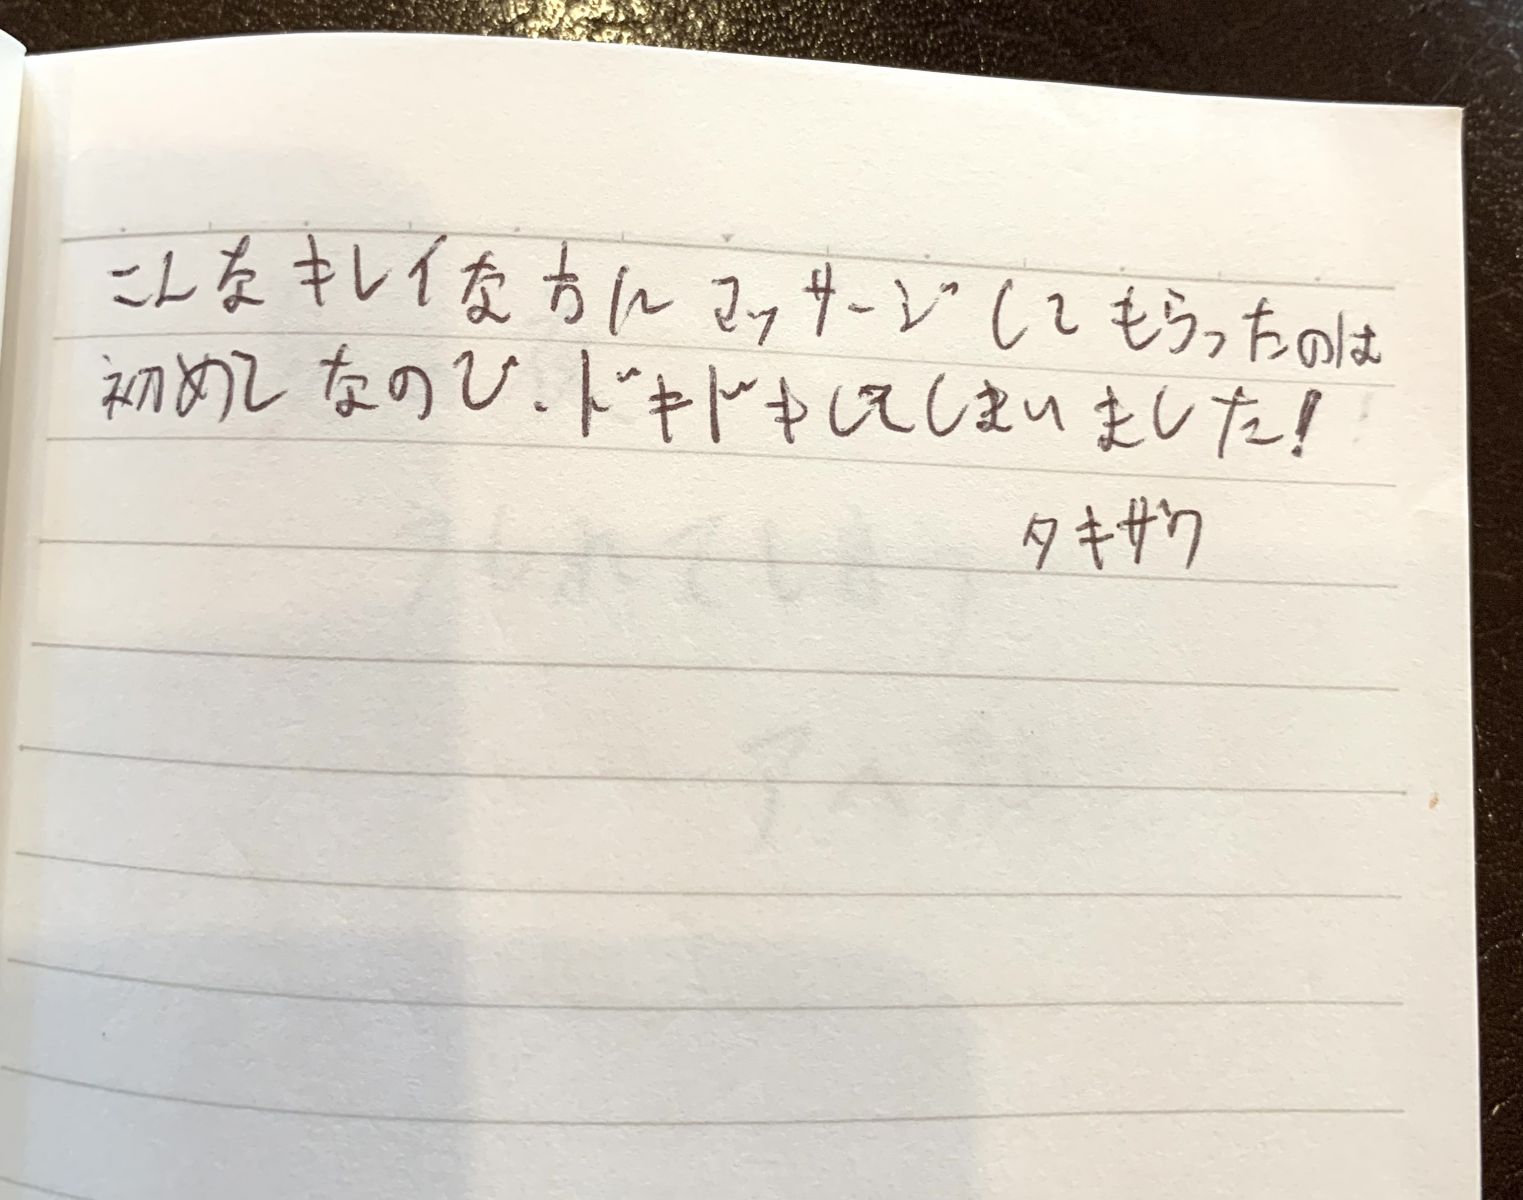 こんなキレイな方にマッサージしてもらったのは
初めてなので、ドキドキしてしまいました!
タキザワ